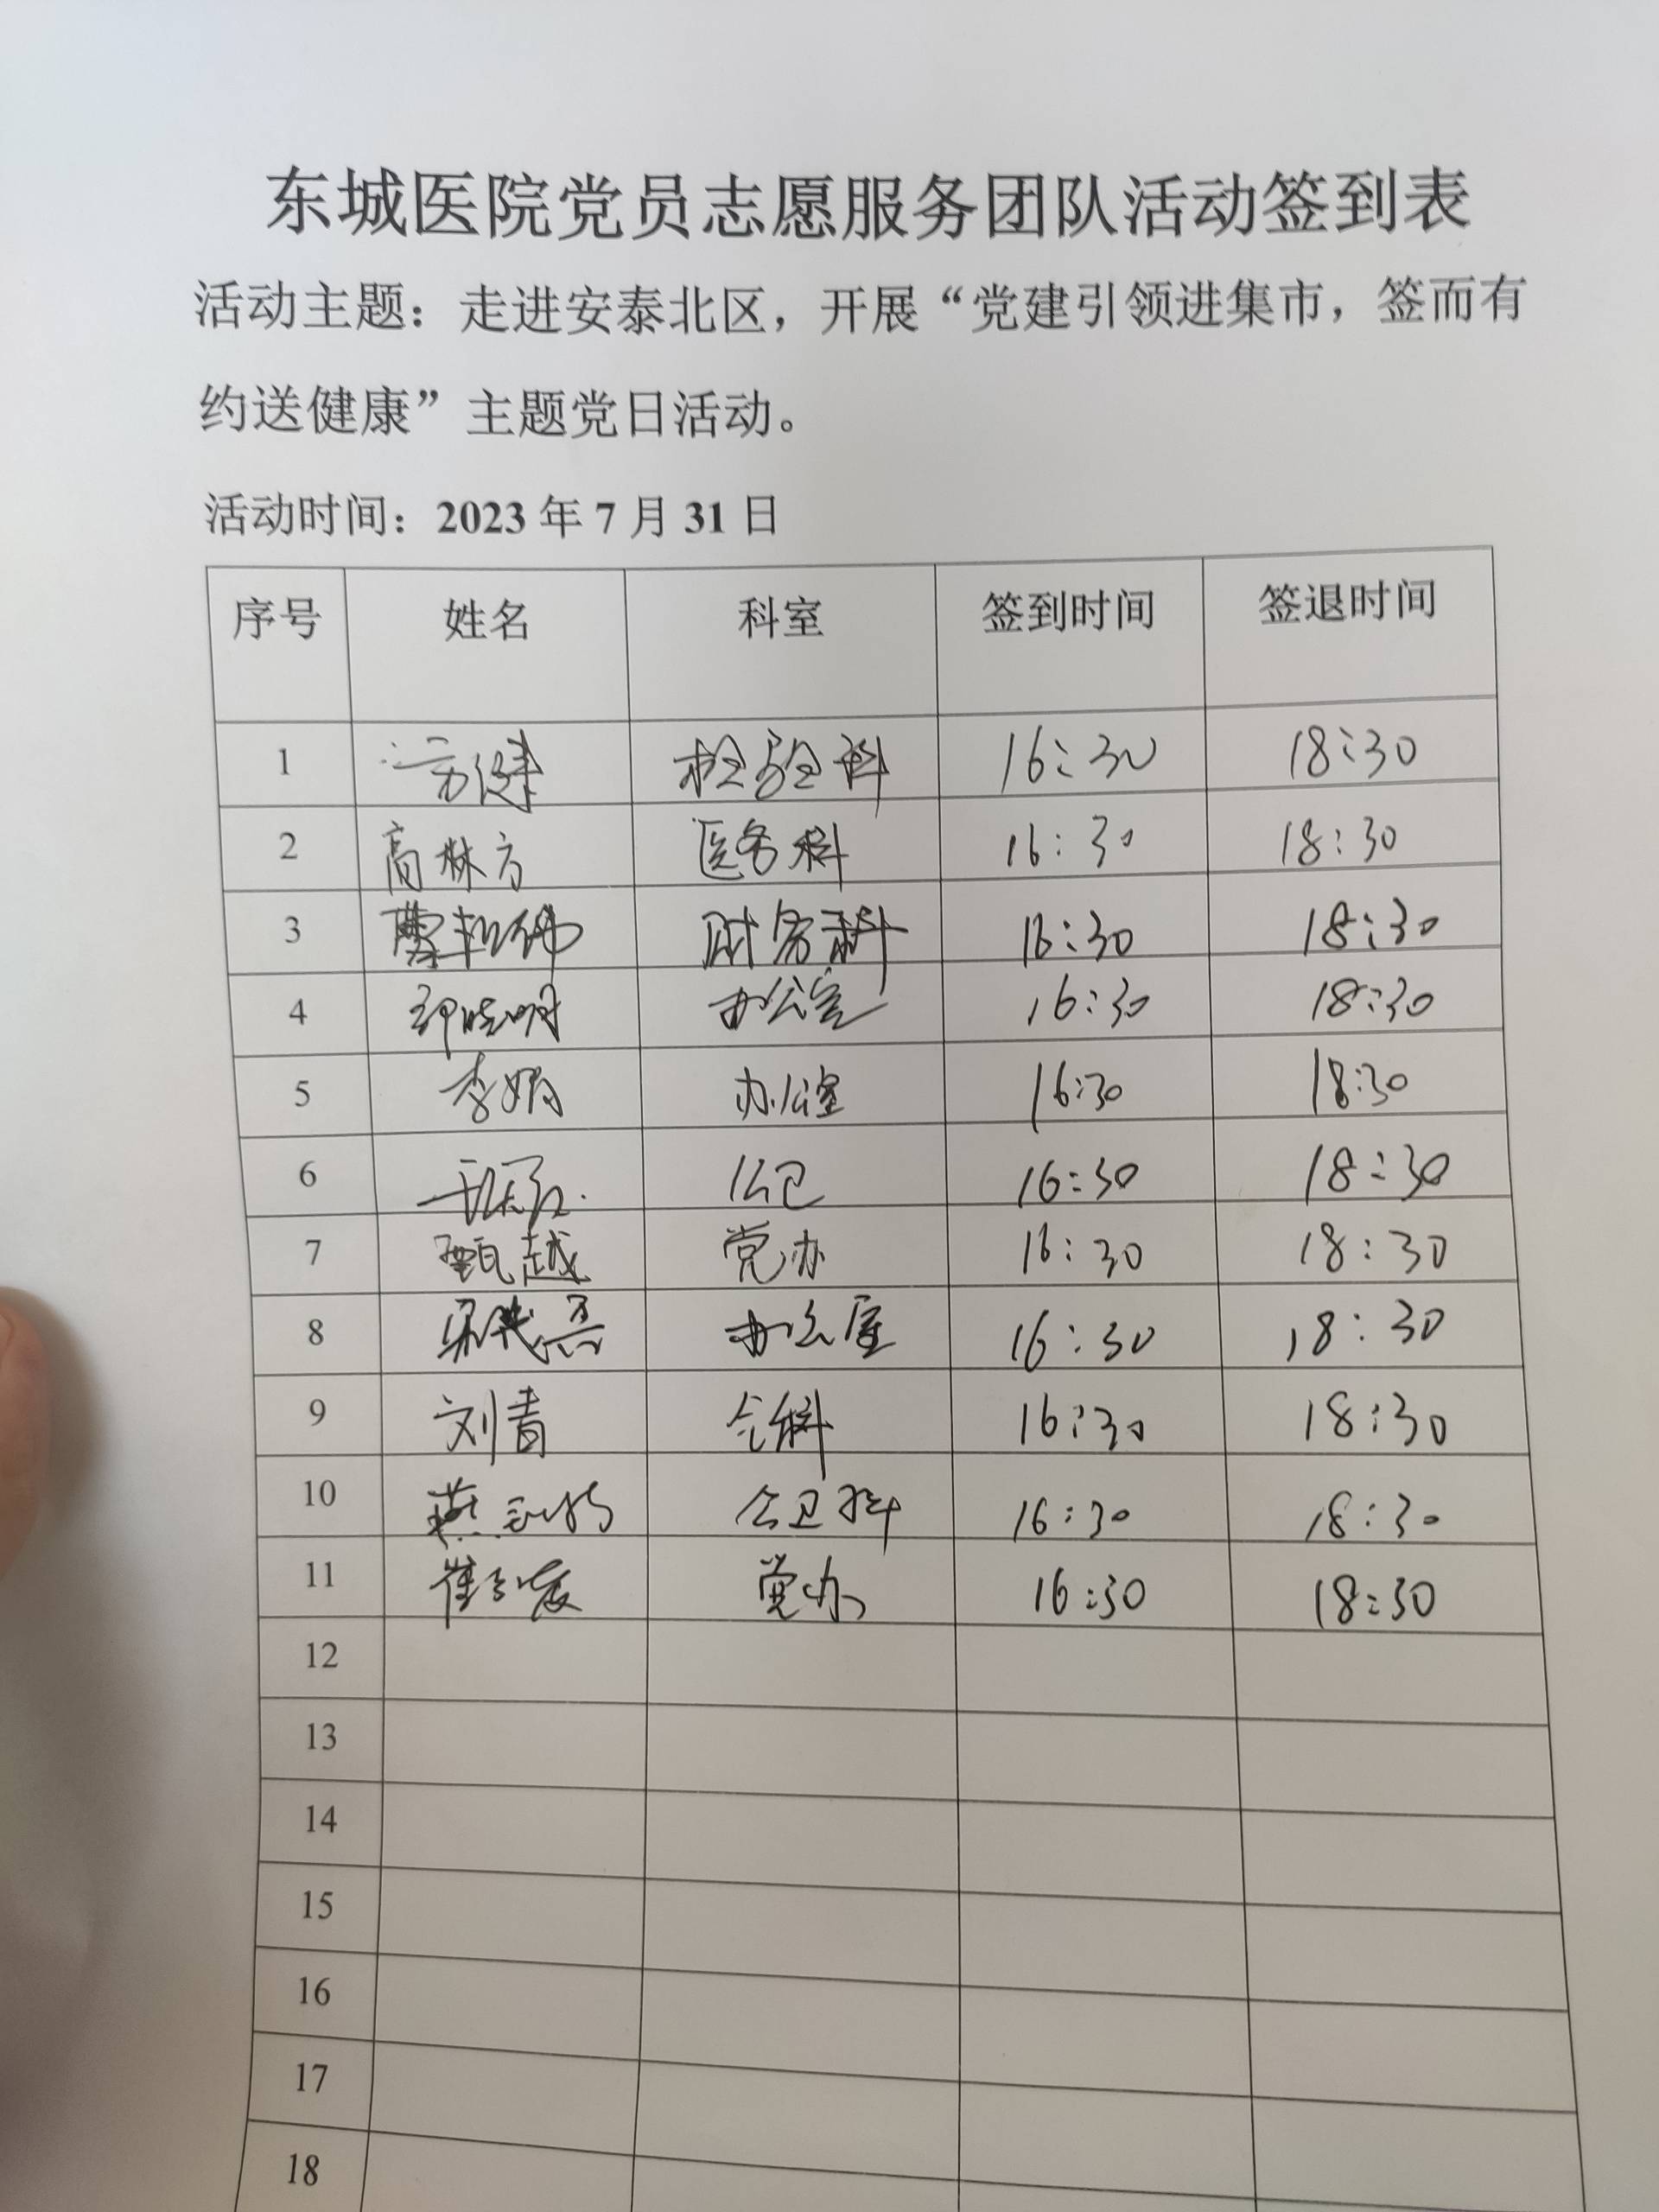 东城医院党员志愿服务团队活动签到表
活动主题：走进安泰北区，开展“党建引领进集市，签而有
约送健康”主题党日活动。
活动时间：2023 年 7 月 31 日
序号 姓名 科室 签到时间 签退时间
1 检验科 16:30 18:30
2 高林方 医务科 16:30 18:30
3 财务科 16:30 18:30
4 邵晓明 办公室 16:30 18:30
5 李娟 办公室 16:30 18:30
6 公卫 16:30 18:30
7 甄越 党办 16:30 18:30
8 办公室 16:30 18:30
9 刘青 16:30 18:30
10 公卫科 16:30 18:30
11 党办 16:30 18:30
12
13
14
15
16
17
18